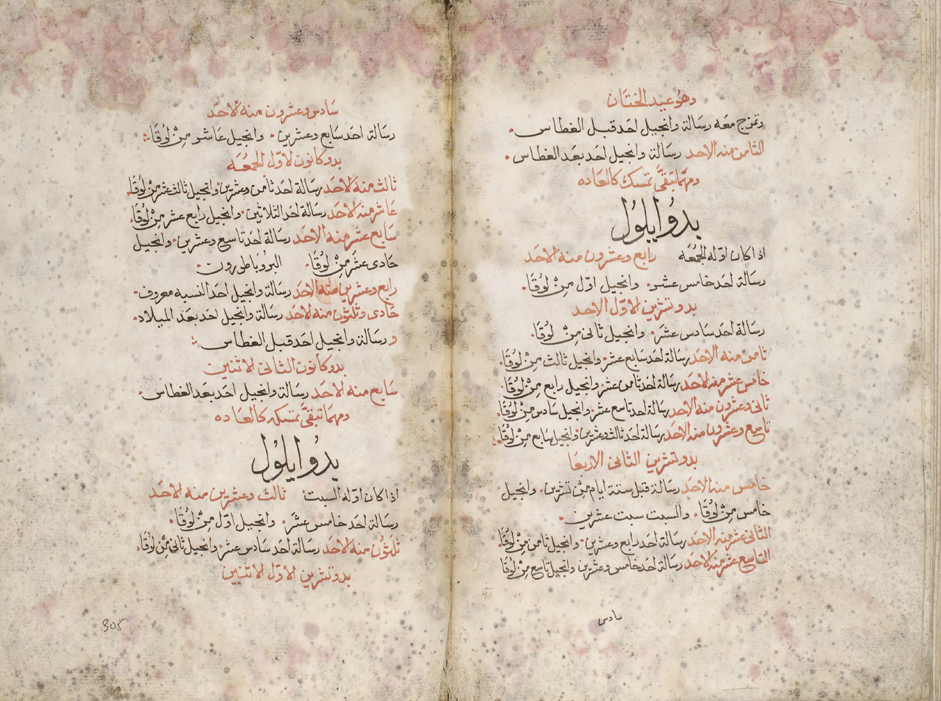 وهو عيد الختان
وتمزج معه رسالة وانجيل احد قبل الغطاس
الثامن منه الاحد رسالة وانجيل احد بعد الغطاس
ومهما تبقى تمسك كالعاده
بدو ايلول
اذا كان اوله الجمعه رابع وعشرون منه الاحد
رسالة احد خامس عشر وانجيل اول من لوقا
بدو تشرين الاول الاحد
رسالة احد سادس عشر وانجيل ثانى من لوقا
ثامن منه الاحد رسالة احد سابع عشر وانجيل ثالث من لوقا
خامس عشر منه الاحد رسالة احد ثامن عشر وانجيل رابع من لوقا
ثانى وعشرون منه الاحد رسالة احد تاسع عشر وانجيل سادس من لوقا
تاسع وعشرون منه الاحد رسالة احد ثالث وعشرين وانجيل سابع من لوقا
بدو تشرين الثانى الاربعا
خامس منه الاحد رسالة قبل ستة ايام من تشرين وانجيل
خامس من لوقا والسبت سبت عشرين
الثانى عشر منه الاحد رسالة احد رابع وعشرين وانجيل ثامن من لوقا
التاسع عشر منه الاحد رسالة احد خامس وعشرين وانجيل تاسع من لوقا
سادس
سادس وعشرون منه الاحد
رسالة احد سابع وعشرين وانجيل عاشر من لوقا
بدو كانون الاول الجمعه
ثالث منه الاحد رسالة احد ثامن وعشرين وانجيل ثالث عشر من لوقا
عاشر منه الاحد رسالة احد الثلاثين وانجيل رابع عشر من لوقا
سابع عشر منه الاحد رسالة احد تاسع وعشرين وانجيل
حادى عشر من لوقا البروباطورون
رابع وعشرين منه الاحد رسالة وانجيل احد النسبه معروف
حادى وثلثون منه الاحد رسالة وانجيل احد بعد الميلاد
و رسالة وانجيل احد قبل الغطاس
بدو كانون الثانى الاثنين
سابع منه الاحد رسالة وانجيل احد بعد الغطاس
ومهما تبقى تمسكه كالعاده
بدو ايلول
اذا كان اوله السبت ثالث وعشرين منه الاحد
رسالة احد خامس عشر وانجيل اول من لوقا
ثلثون منه الاحد رسالة احد سادس عشر وانجيل ثانى من لوقا
بدو تشرين الاول الاثنين
305